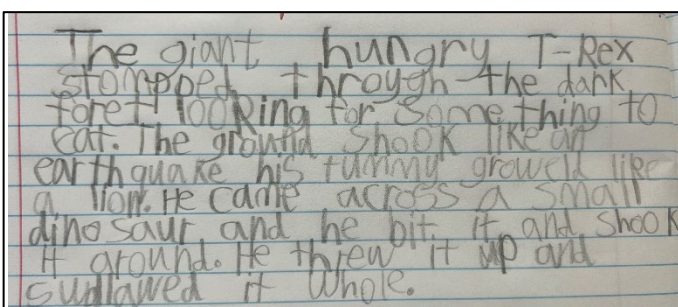 The giant hungry T-Rex
stomped through the dark
foret looking for something to
eat. The ground shook like an
earthquake his tummy groweld like
a lion. He came across a small
dinosaur and he bit it and shook
it around. He threw it up and
swallawed it whole.